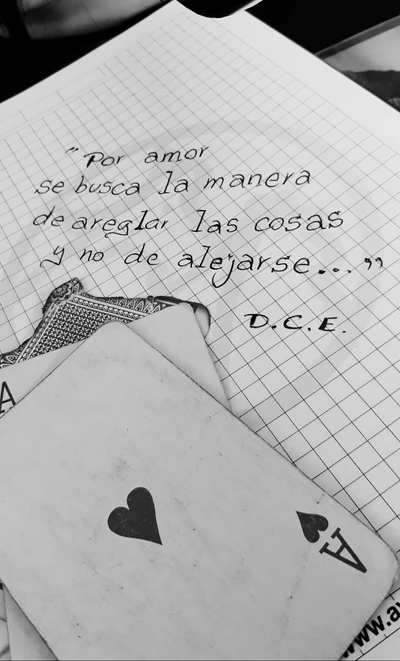 "Por amor
se busca la manera
de areglar las cosas
y no de alejarse..."
D.C.E.
A
A
www.a